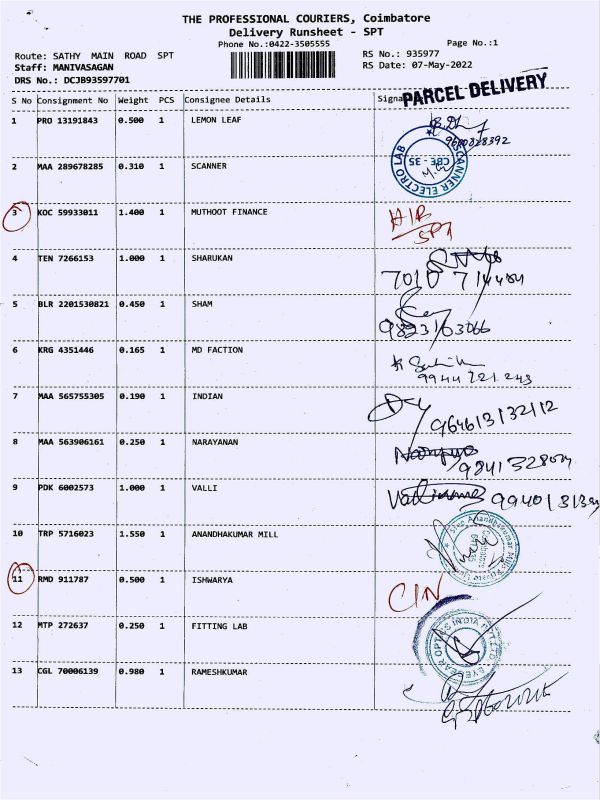 THE PROFESSIONAL COURIERS, Coimbatore
Delivery Runsheet - SPT
Phone No.:0422-3505555
Page No.:1
Route: SATHY MAIN ROAD SPT
RS No.: 935977
Staff: MANIVASAGAN
RS Date: 07-May-2022
DRS No.: DCJB93597701
PARCEL DELIVERY
S No Consignment No Weight PCS Consignee Details
1 PRO 13191843 0.500 1 LEMON LEAF
2 MAA 289678285 0.310 1 SCANNER
SCANNER ELECTRO LAB CBE - 35
3 KOC 59933011 1.400 1 MUTHOOT FINANCE
4 TEN 7266153 1.000 1 SHARUKAN
5 BLR 2201530821 0.450 1 SHAM
6 KRG 4351446 0.165 1 MD FACTION
9944 221 243
7 MAA 565755305 0.190 1 INDIAN
8 MAA 563906161 0.250 1 NARAYANAN
9 PDK 6002573 1.000 1 VALLI
10 TRP 5716023 1.550 1 ANANDHAKUMAR MILL
Sree Anandhakumar Mills Private
11 RMD 911787 0.500 1 ISHWARYA
CIN
12 MTP 272637 0.250 1 FITTING LAB
EYEGEAR OPTICS INDIA
13 CGL 70006139 0.980 1 RAMESHKUMAR